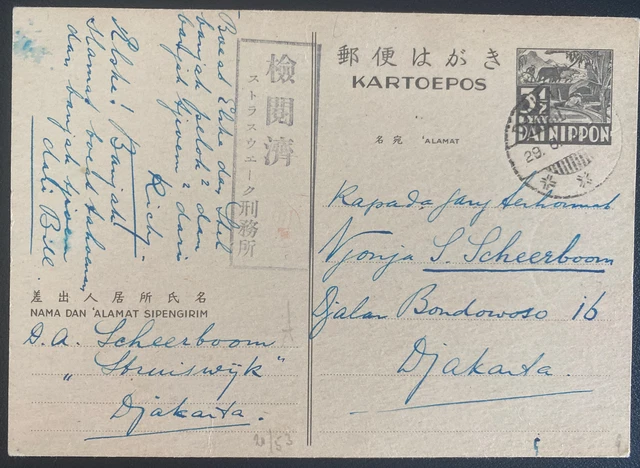 郵便はがき
KARTOEPOS
3½
DAI NIPPON
29.
名宛 'ALAMAT
Kapada jang terhormat
Njonja S. Scheerboom
Djalan Bondowoso 16
Djakarta.
検閲済
ストラスウエーク刑務所
Boeat Elske dan Stel
banjak pelok² dan
banjak tjioem² dari
Richy
Elske! Banjak
Slamat boeat tahoenan
dan banjak tjioem
dari Bill
差出人居所氏名
NAMA DAN 'ALAMAT SIPENGIRIM
D. A. Scheerboom
"Struiswijk"
Djakarta.